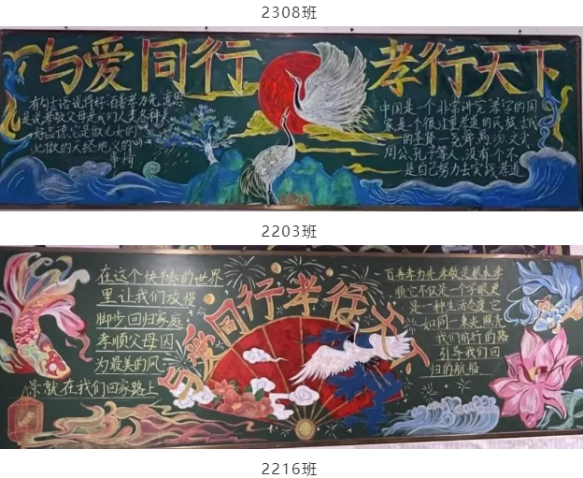 2308班
与爱同行 孝行天下
有句古语说得好:百善孝为先,意思
是说孝敬父母是我们人类各种美
好品德,它是做儿女的
必做的天经地义的
事情
中国是一个非常讲究孝字的国
家是个很注重孝道的民族,古代
的圣贤—尧舜禹汤文武
周公,孔子等人,没有一个不
是自己努力去实践孝道
2203班
在这个快节奏的世界
里让我们放慢
脚步回归家庭
孝顺父母因
为最美的风
景就在我们回家路上
与爱同行孝行天下
百善孝为先孝敬是根本孝
顺它不仅是一个字眼更
是一种生活态度它
如同一束光照亮
我们前行的路
引导我们回
归的航船
2216班